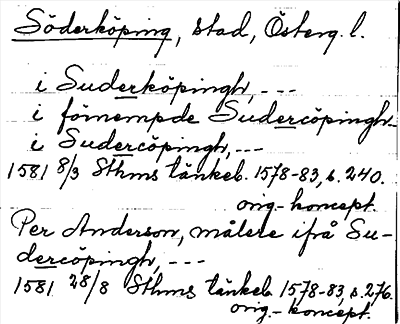 Söderköping, stad, Österg. l.
i Suderköpingh, ---
i förnempde Sudercöpingh
i Sudercöpingh, ---
1581 8/3 Sthms tänkeb. 1578-83, s. 240.
orig.-koncept.
Per Anderson, målere ifrå Su-
dercöpingh, ---
1581 28/8 Sthms tänkeb. 1578-83, s. 276.
orig.-koncept.